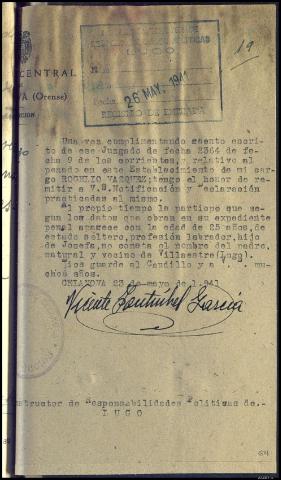 19
CENTRAL
(Orense)
LUGO
26 MAY. 1941
Fecha
REGISTRO DE ENTRADA
Una vez cumplimentando escri-
to de ese Juzgado de fecha 2364 de fe-
cha 9 de los corrientes, y relativo al
penado en este Establecimiento de mi car-
go ROGELIO VAZQUEZ; tengo el honor de re-
mitir a V.S. Notificación y Declaración
practicadas al mismo.
Al propio tiempo la participo que se-
gun los datos que obran en su expediente
penal aparece con la edad de 25 años, de
estado soltero, profesión labrador, hijo
de Josefa, no consta el nombre del padre,
natural y vecino de Villaestre (Lugo).
Dios guarde al Caudillo y a V.S. mu-
chos años.
CELANOVA 23 de mayo de 1.941
Vicente García
Instructor de Responsabilidades Politicas de.-
LUGO